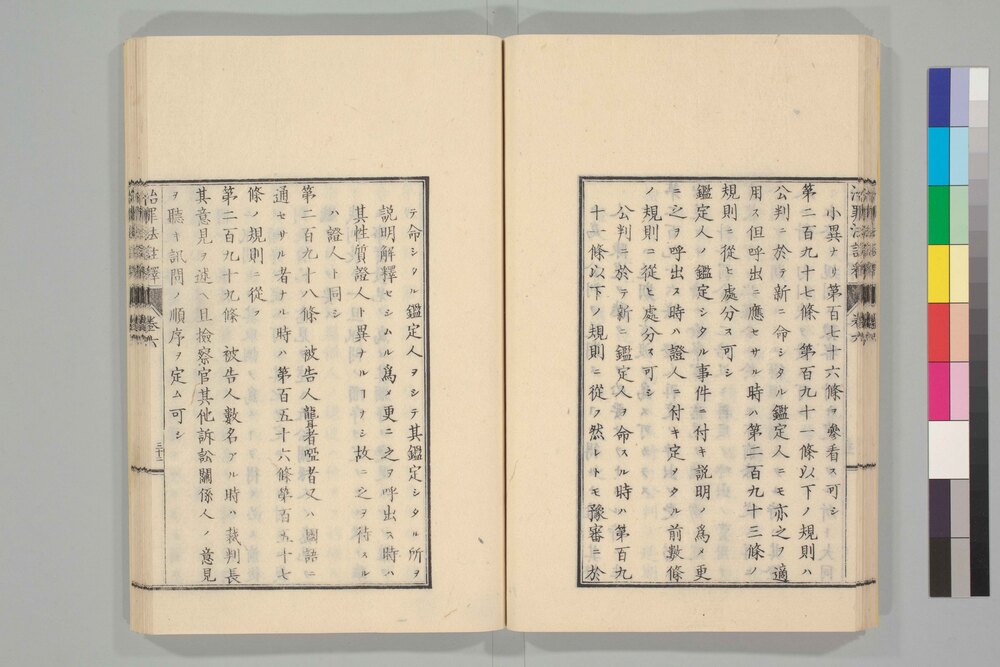 小異ナリ第百七十六條ヲ參看ス可シ
第二百九十七條 第百九十一條以下ノ規則ハ
公判ニ於テ新ニ命シタル鑑定人ニモ亦之ヲ適
用ス但呼出ニ應セサル時ハ第二百九十三條ノ
規則ニ從ヒ處分ス可シ
鑑定人ノ鑑定シタル事件ニ付キ説明ノ爲メ更
ニ之ヲ呼出ス時ハ證人ニ付キ定メタル前數條
ノ規則ニ從ヒ處分ス可シ
公判ニ於テ新ニ鑑定人ヲ命スル時ハ第百九
十一條以下ノ規則ニ從フ然レトモ豫審ニ於
治罪法註釋 卷六
テ命シタル鑑定人ヲシテ其鑑定シタル所ヲ
説明解釋セシムル爲メ更ニ之ヲ呼出ス時ハ
其性質證人ト異ナルヿナシ故ニ之ヲ待スル
ハ證人ト同シ
第二百九十八條 被告人聾者啞者又ハ國語ニ
通セサル者ナル時ハ第百五十六條第百五十七
條ノ規則ニ從フ
第二百九十九條 被告人數名アル時ハ裁判長
其意見ヲ述ヘ且撿察官其他訴訟關係人ノ意見
ヲ聽キ訊問ノ順序ヲ定ム可シ
治罪法註釋 卷六 三十二